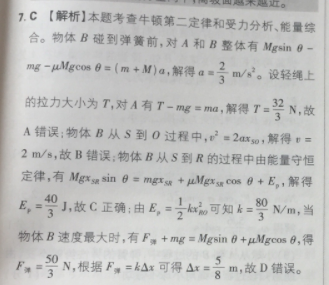 越来越近。
7. C 【解析】本题考查牛顿第二定律和受力分析、能量综
合。物体 B 碰到弹簧前,对 A 和 B 整体有 Mgsin θ -
mg - μMgcos θ = (m + M)a,解得 a = 2/3 m/s²。设轻绳上
的拉力大小为 T,对 A 有 T - mg = ma,解得 T = 32/3 N,故
A 错误;物体 B 从 S 到 O 过程中,v² = 2ax_SO,解得 v =
2 m/s,故 B 错误;物体 B 从 S 到 R 的过程中由能量守恒
定律,有 Mgx_SR sin θ = mgx_SR + μMgx_SR cos θ + E_p,解得
E_p = 40/3 J,故 C 正确;由 E_p = 1/2 kx²_RO 可知 k = 80/3 N/m,当
物体 B 速度最大时,有 F_弹 + mg = Mgsin θ + μMgcos θ,得
F_弹 = 50/3 N,根据 F_弹 = kΔx 可得 Δx = 5/8 m,故 D 错误。